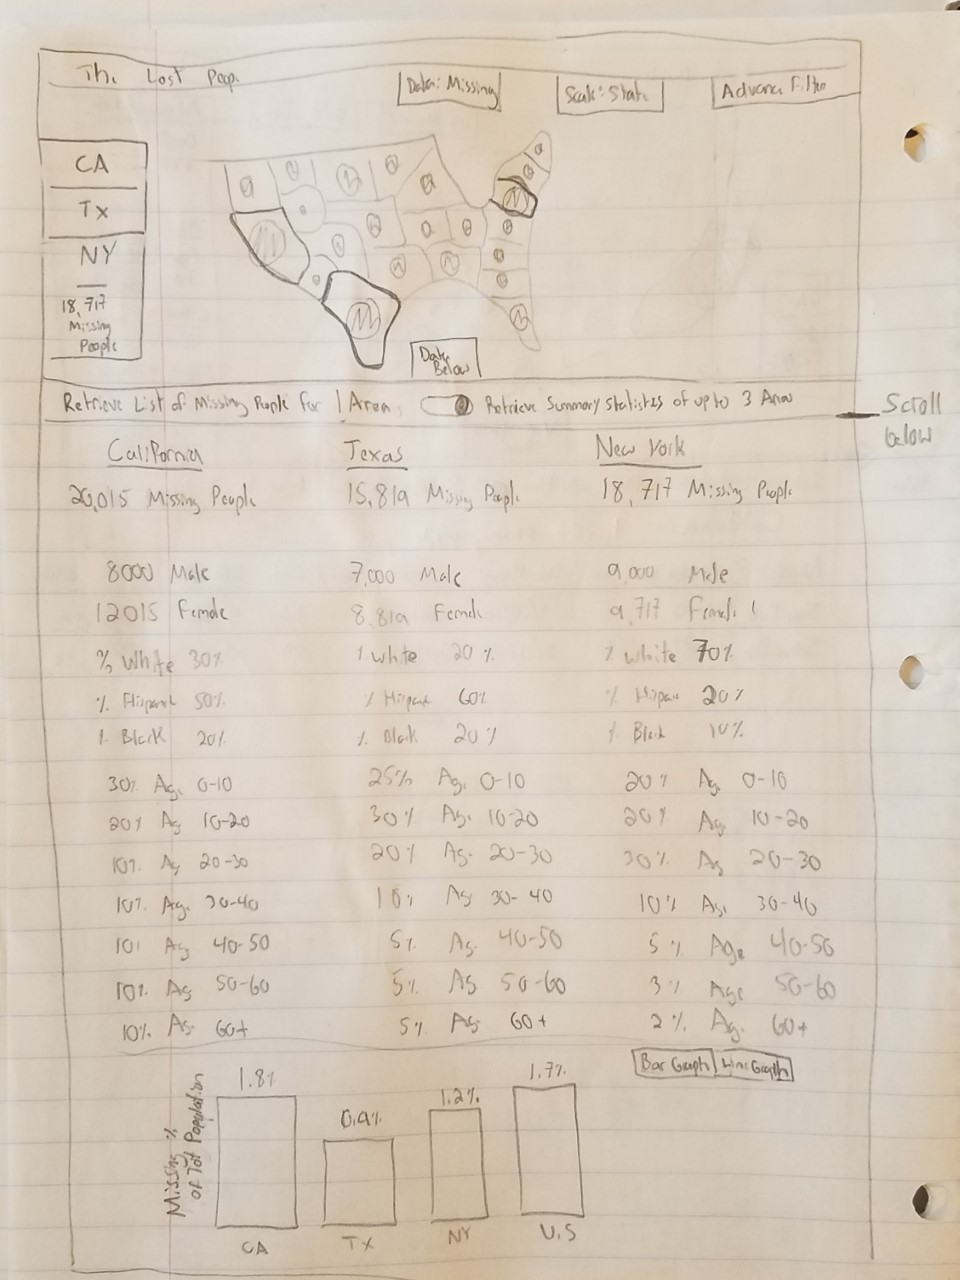 The Lost Peop.
Data: Missing
Scale: State
Advance Filter
CA
Tx
NY
18,717
Missing
People
Data
Below
Retrieve List of Missing People for 1 Area
Retrieve Summary Statistics of up to 3 Area
Scroll
below
California Texas New York
20,015 Missing People 15,819 Missing People 18,717 Missing People
8000 Male 7,000 Male 9,000 Male
12015 Female 8,819 Female 9,717 Female
% White 30% % white 20% % white 70%
% Hispanic 50% % Hispanic 60% % Hispanic 20%
% Black 20% % Black 20% % Black 10%
30% Age 0-10 25% Age 0-10 20% Age 0-10
20% Age 10-20 30% Age 10-20 20% Age 10-20
10% Age 20-30 20% Age 20-30 30% Age 20-30
10% Age 30-40 10% Age 30-40 10% Age 30-40
10% Age 40-50 5% Age 40-50 5% Age 40-50
10% Age 50-60 5% Age 50-60 3% Age 50-60
10% Age 60+ 5% Age 60+ 2% Age 60+
Bar Graph Line Graph
Missing %
of Tot Population
1.8% 1.2% 1.7%
CA TX NY U.S